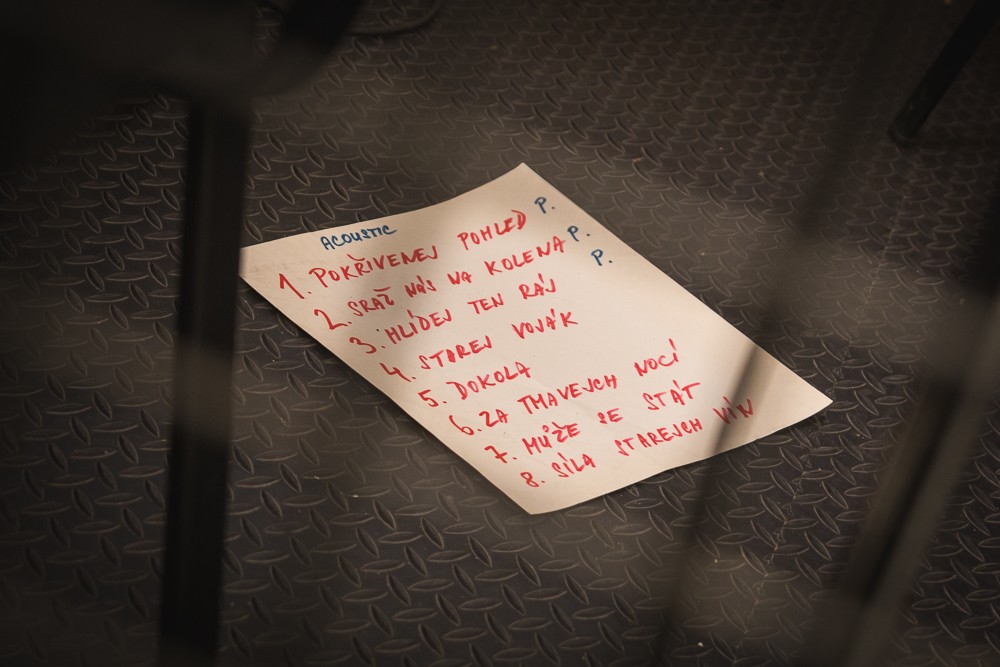 ACOUSTIC
1. POKŘIVENEJ POHLED P.
2. SRAČ NÁS NA KOLENA P.
3. HLÍDEJ TEN RÁJ P.
4. STAREJ VOJÁK
5. DOKOLA
6. ZA TMAVEJCH NOCÍ
7. MŮŽE SE STÁT
8. SÍLA STAREJCH VÍN